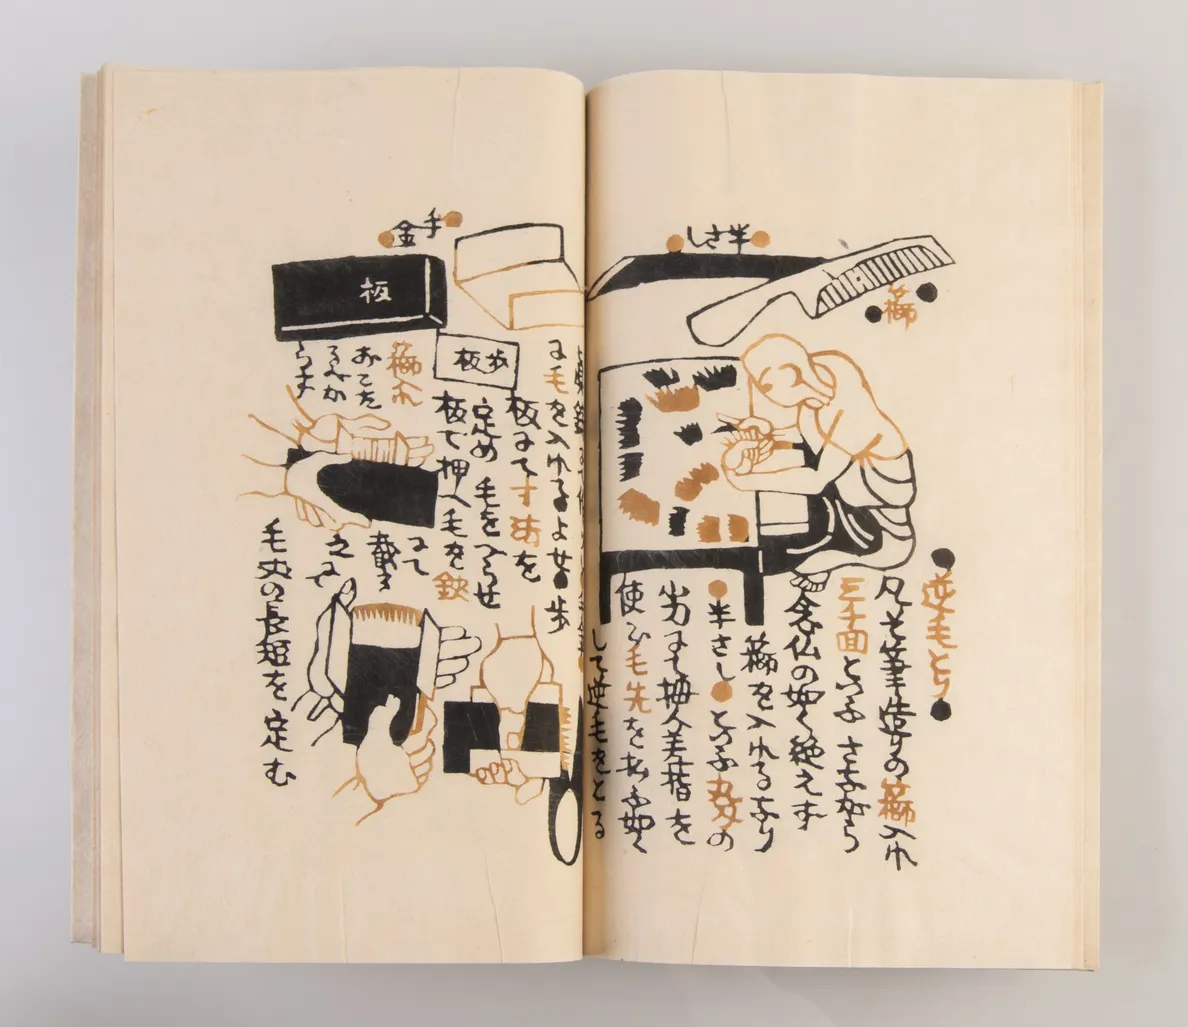 半さし
櫛
逆毛とり
凡そ筆造りの櫛入れ
三千面といふ さながら
念仏の如く絶えず
櫛を入れるなり
半さし といふ
劣にて拇人差指を
使ひ毛先を払ふ如く
して逆毛をとる
手金
板
歩板
に毛を入れるよせ 歩
板にて寸法を
定め 毛を
板で押へ毛を鋏
にて
櫛入れ
おこたるべからず
毛丈の長短を定む